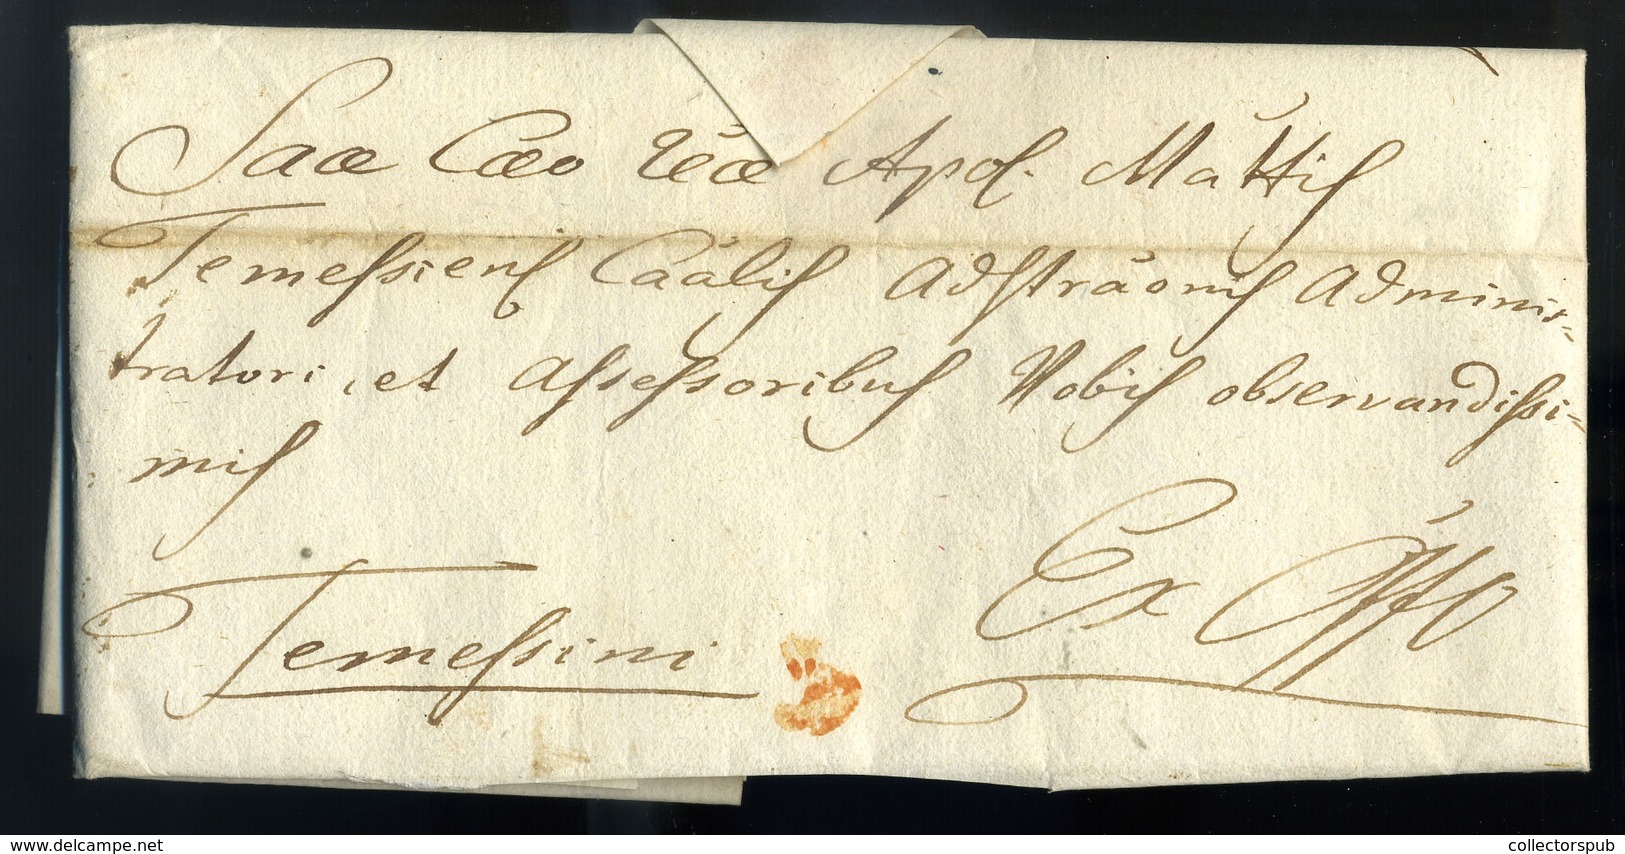 Sacæ Cæo Reæ Apol. Mattis
Temessiens Caälis Adstraönis Adminis-
tratori, et Assessoribus Nobis observandissi-
mis
Temessini
Ex Offo
collectorspub